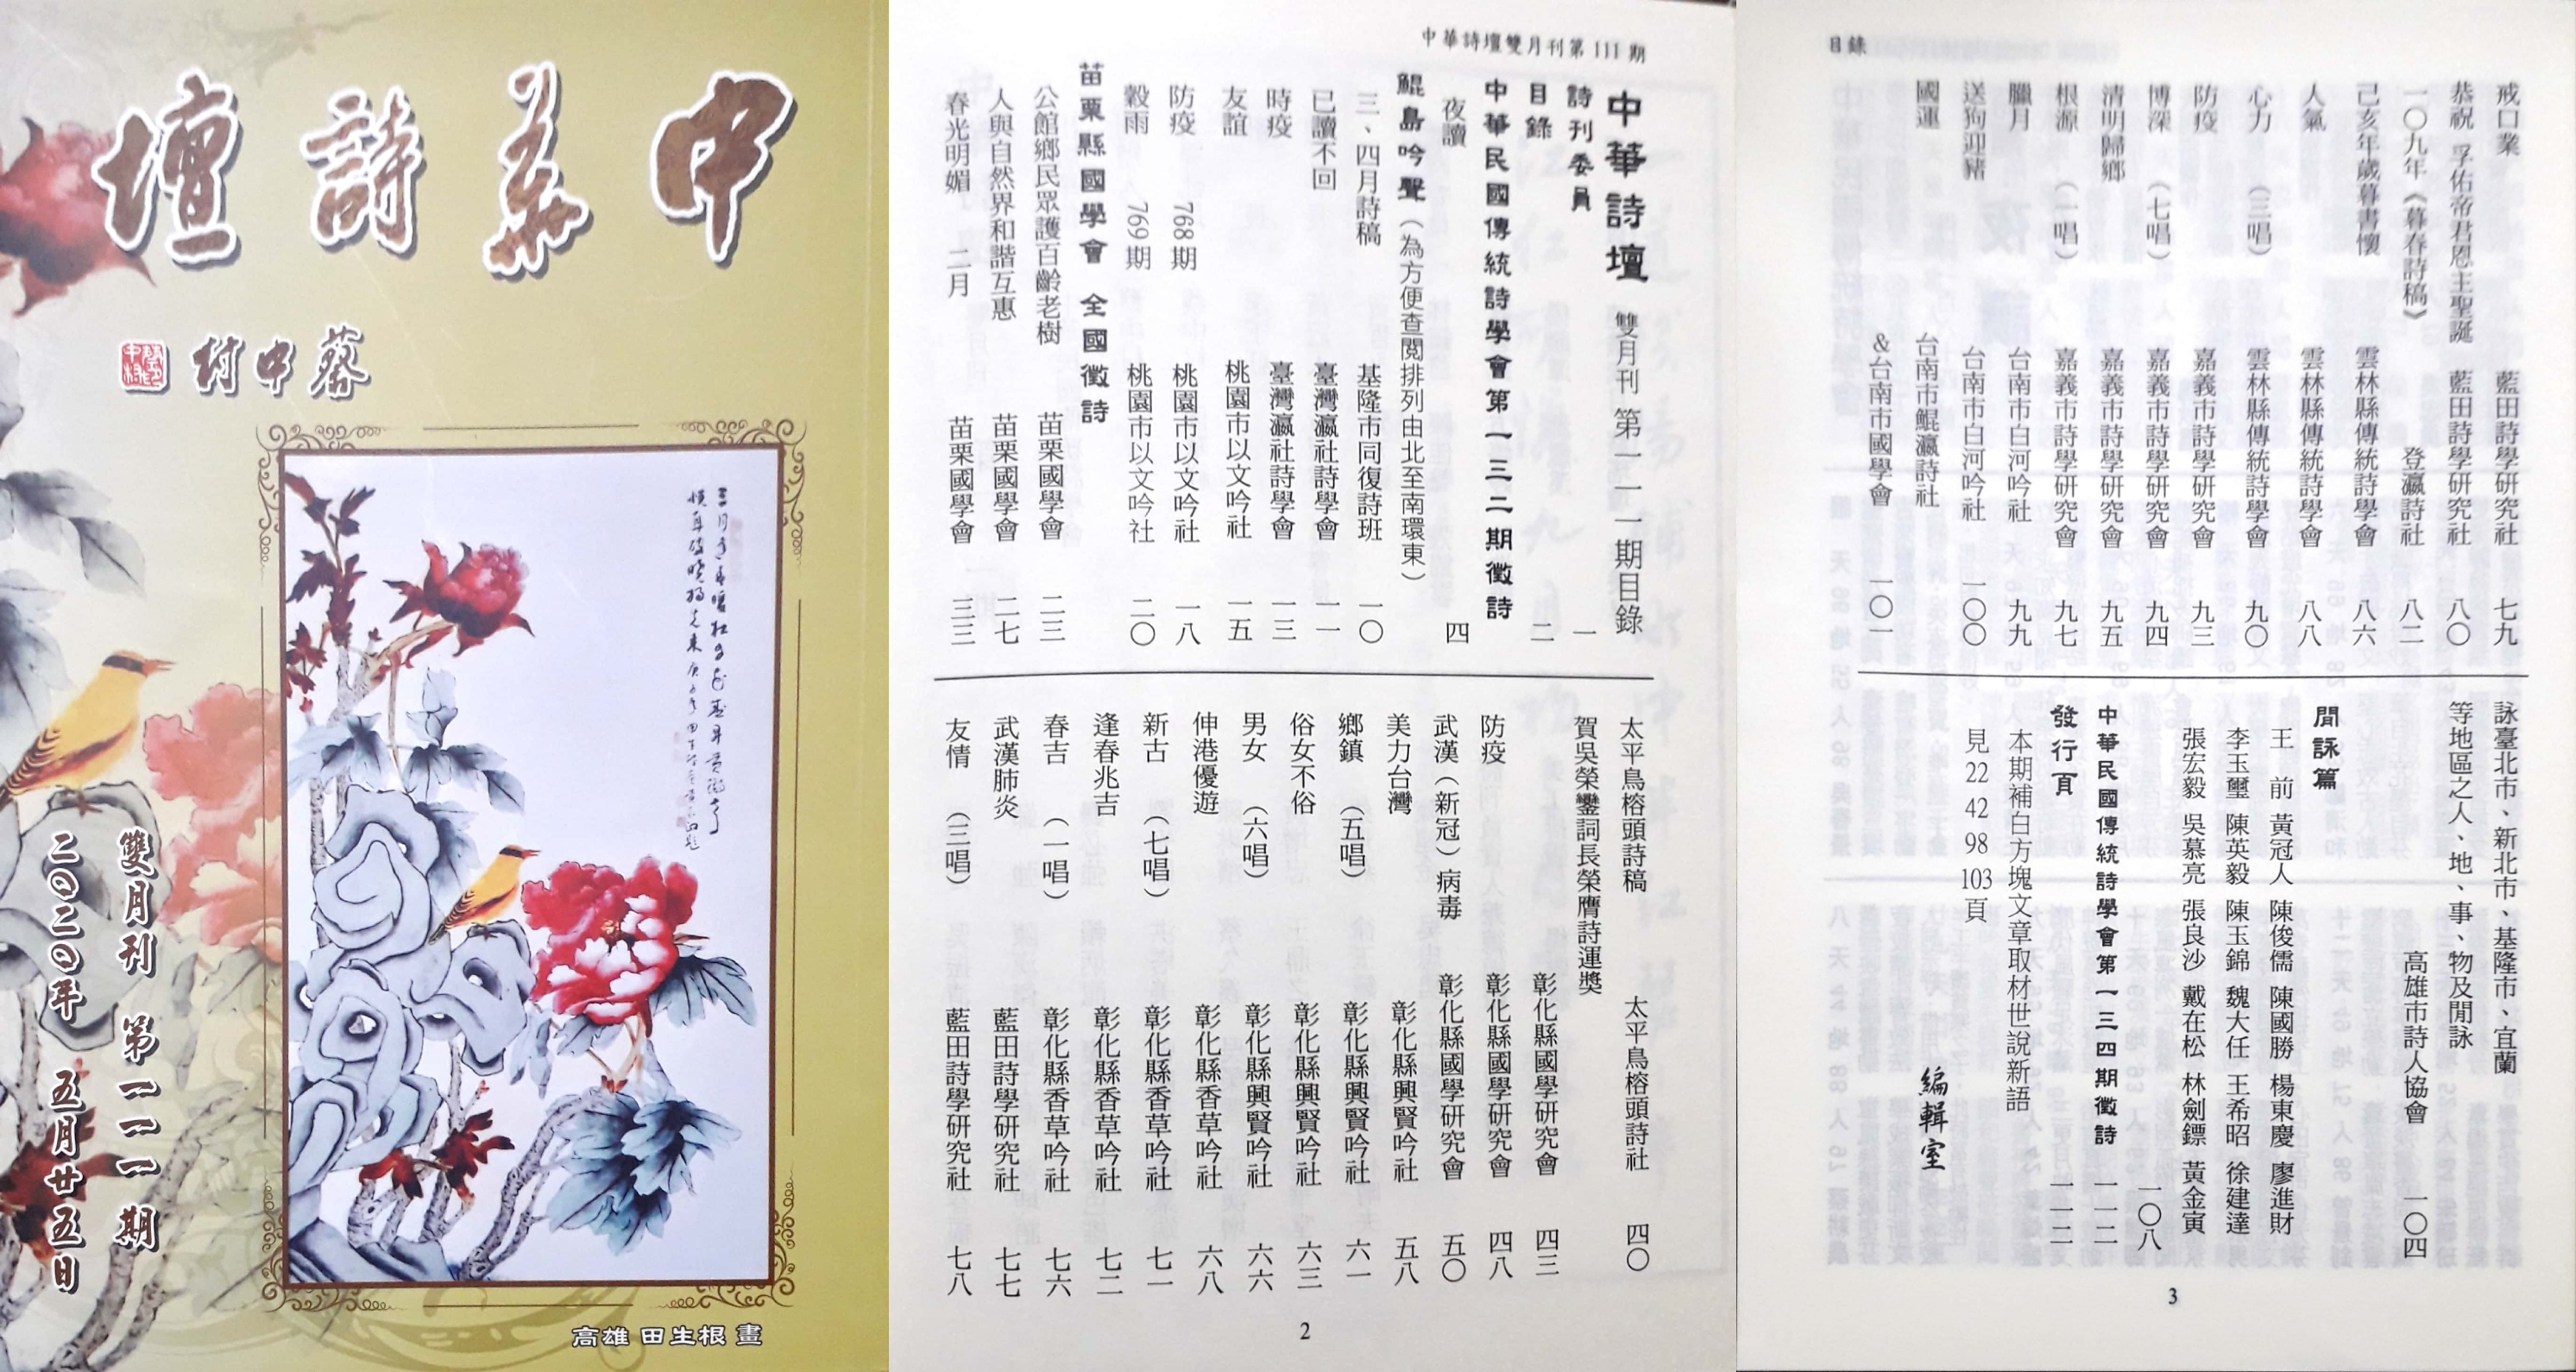 中華詩壇
蔡中村
雙月刊 第一一一期
二〇二〇年 五月廿五日
高雄 田生根 畫
中華詩壇雙月刊第111期
中華詩壇 雙月刊 第一一一期目錄
詩刊委員 一
目錄 二
中華民國傳統詩學會第一三二期徵詩
夜讀 四
鯤島吟聲（為方便查閱排列由北至南環東）
三、四月詩稿 基隆市同復詩班 一〇
已讀不回 臺灣瀛社詩學會 一一
時疫 臺灣瀛社詩學會 一三
友誼 桃園市以文吟社 一五
防疫 768期 桃園市以文吟社 一八
穀雨 769期 桃園市以文吟社 二〇
苗栗縣國學會 全國徵詩
公館鄉民眾護百齡老樹 苗栗國學會 二三
人與自然界和諧互惠 苗栗國學會 二七
春光明媚 二月 苗栗國學會 三三
太平鳥榕頭詩稿 太平鳥榕頭詩社 四〇
賀吳榮鑾詞長榮膺詩運獎
彰化縣國學研究會 四三
防疫 彰化縣國學研究會 四八
武漢（新冠）病毒 彰化縣國學研究會 五〇
美力台灣 彰化縣興賢吟社 五八
鄉鎮（五唱） 彰化縣興賢吟社 六一
俗女不俗 彰化縣興賢吟社 六三
男女（六唱） 彰化縣興賢吟社 六六
伸港優遊 彰化縣香草吟社 六八
新古（七唱） 彰化縣香草吟社 七一
逢春兆吉 彰化縣香草吟社 七二
春吉（一唱） 彰化縣香草吟社 七六
武漢肺炎 藍田詩學研究社 七七
友情（三唱） 藍田詩學研究社 七八
2
目錄
戒口業 藍田詩學研究社 七九
恭祝 孚佑帝君恩主聖誕 藍田詩學研究社 八〇
一〇九年《暮春詩稿》 登瀛詩社 八二
己亥年歲暮書懷 雲林縣傳統詩學會 八六
人氣 雲林縣傳統詩學會 八八
心力（三唱） 雲林縣傳統詩學會 九〇
防疫 嘉義市詩學研究會 九三
博深（七唱） 嘉義市詩學研究會 九四
清明歸鄉 嘉義市詩學研究會 九五
根源（一唱） 嘉義市詩學研究會 九七
臘月 台南市白河吟社 九九
送狗迎豬 台南市白河吟社 一〇〇
國運 台南市鯤瀛詩社
&台南市國學會 一〇一
詠臺北市、新北市、基隆市、宜蘭
等地區之人、地、事、物及閒詠
高雄市詩人協會 一〇四
閒詠篇
王 前 黃冠人 陳俊儒 陳國勝 楊東慶 廖進財
李玉璽 陳英毅 陳玉錦 魏大任 王希昭 徐建達
張宏毅 吳慕亮 張良沙 戴在松 林劍鏢 黃金寅
一〇八
中華民國傳統詩學會第一三四期徵詩 一一二
發行頁 一一二
本期補白方塊文章取材世說新語
見22 42 98 103頁
編輯室
3